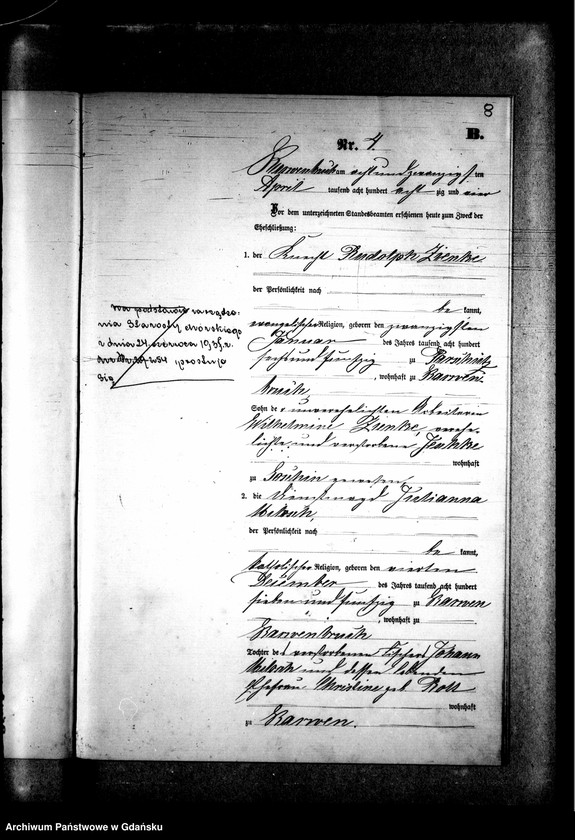 8
B.
Nr. 4.
am acht und zwanzigsten
April tausend acht hundert acht zig und vier
Vor dem unterzeichneten Standesbeamten erschienen heute zum Zweck der
Eheschließung:
1. der Knecht Rudolph Zienke
der Persönlichkeit nach
be kannt,
evangelischer Religion, geboren den zwanzigsten
Januar des Jahres tausend acht hundert
sechs und fünfzig zu
, wohnhaft zu Karwen-
bruch
Sohn der unverehelichten Arbeiterin
Wilhelmine Zienke, verehe-
lichte und verstorbene Jeschke
wohnhaft
zu gewesen
2. die Dienstmagd Julianna
der Persönlichkeit nach
be kannt,
katholischer Religion, geboren den vierten
December des Jahres tausend acht hundert
sieben und fünfzig zu Karwen
, wohnhaft zu
Karwenbruch
Tochter des verstorbenen Fischers Johann
und dessen lebenden
Ehefrau Christine geb.
wohnhaft
zu Karwen.
na podstawie zarządze-
nia Starosty morskiego
z dnia 24 czerwca 193 r.
prostuje
się
Archiwum Państwowe w Gdańsku